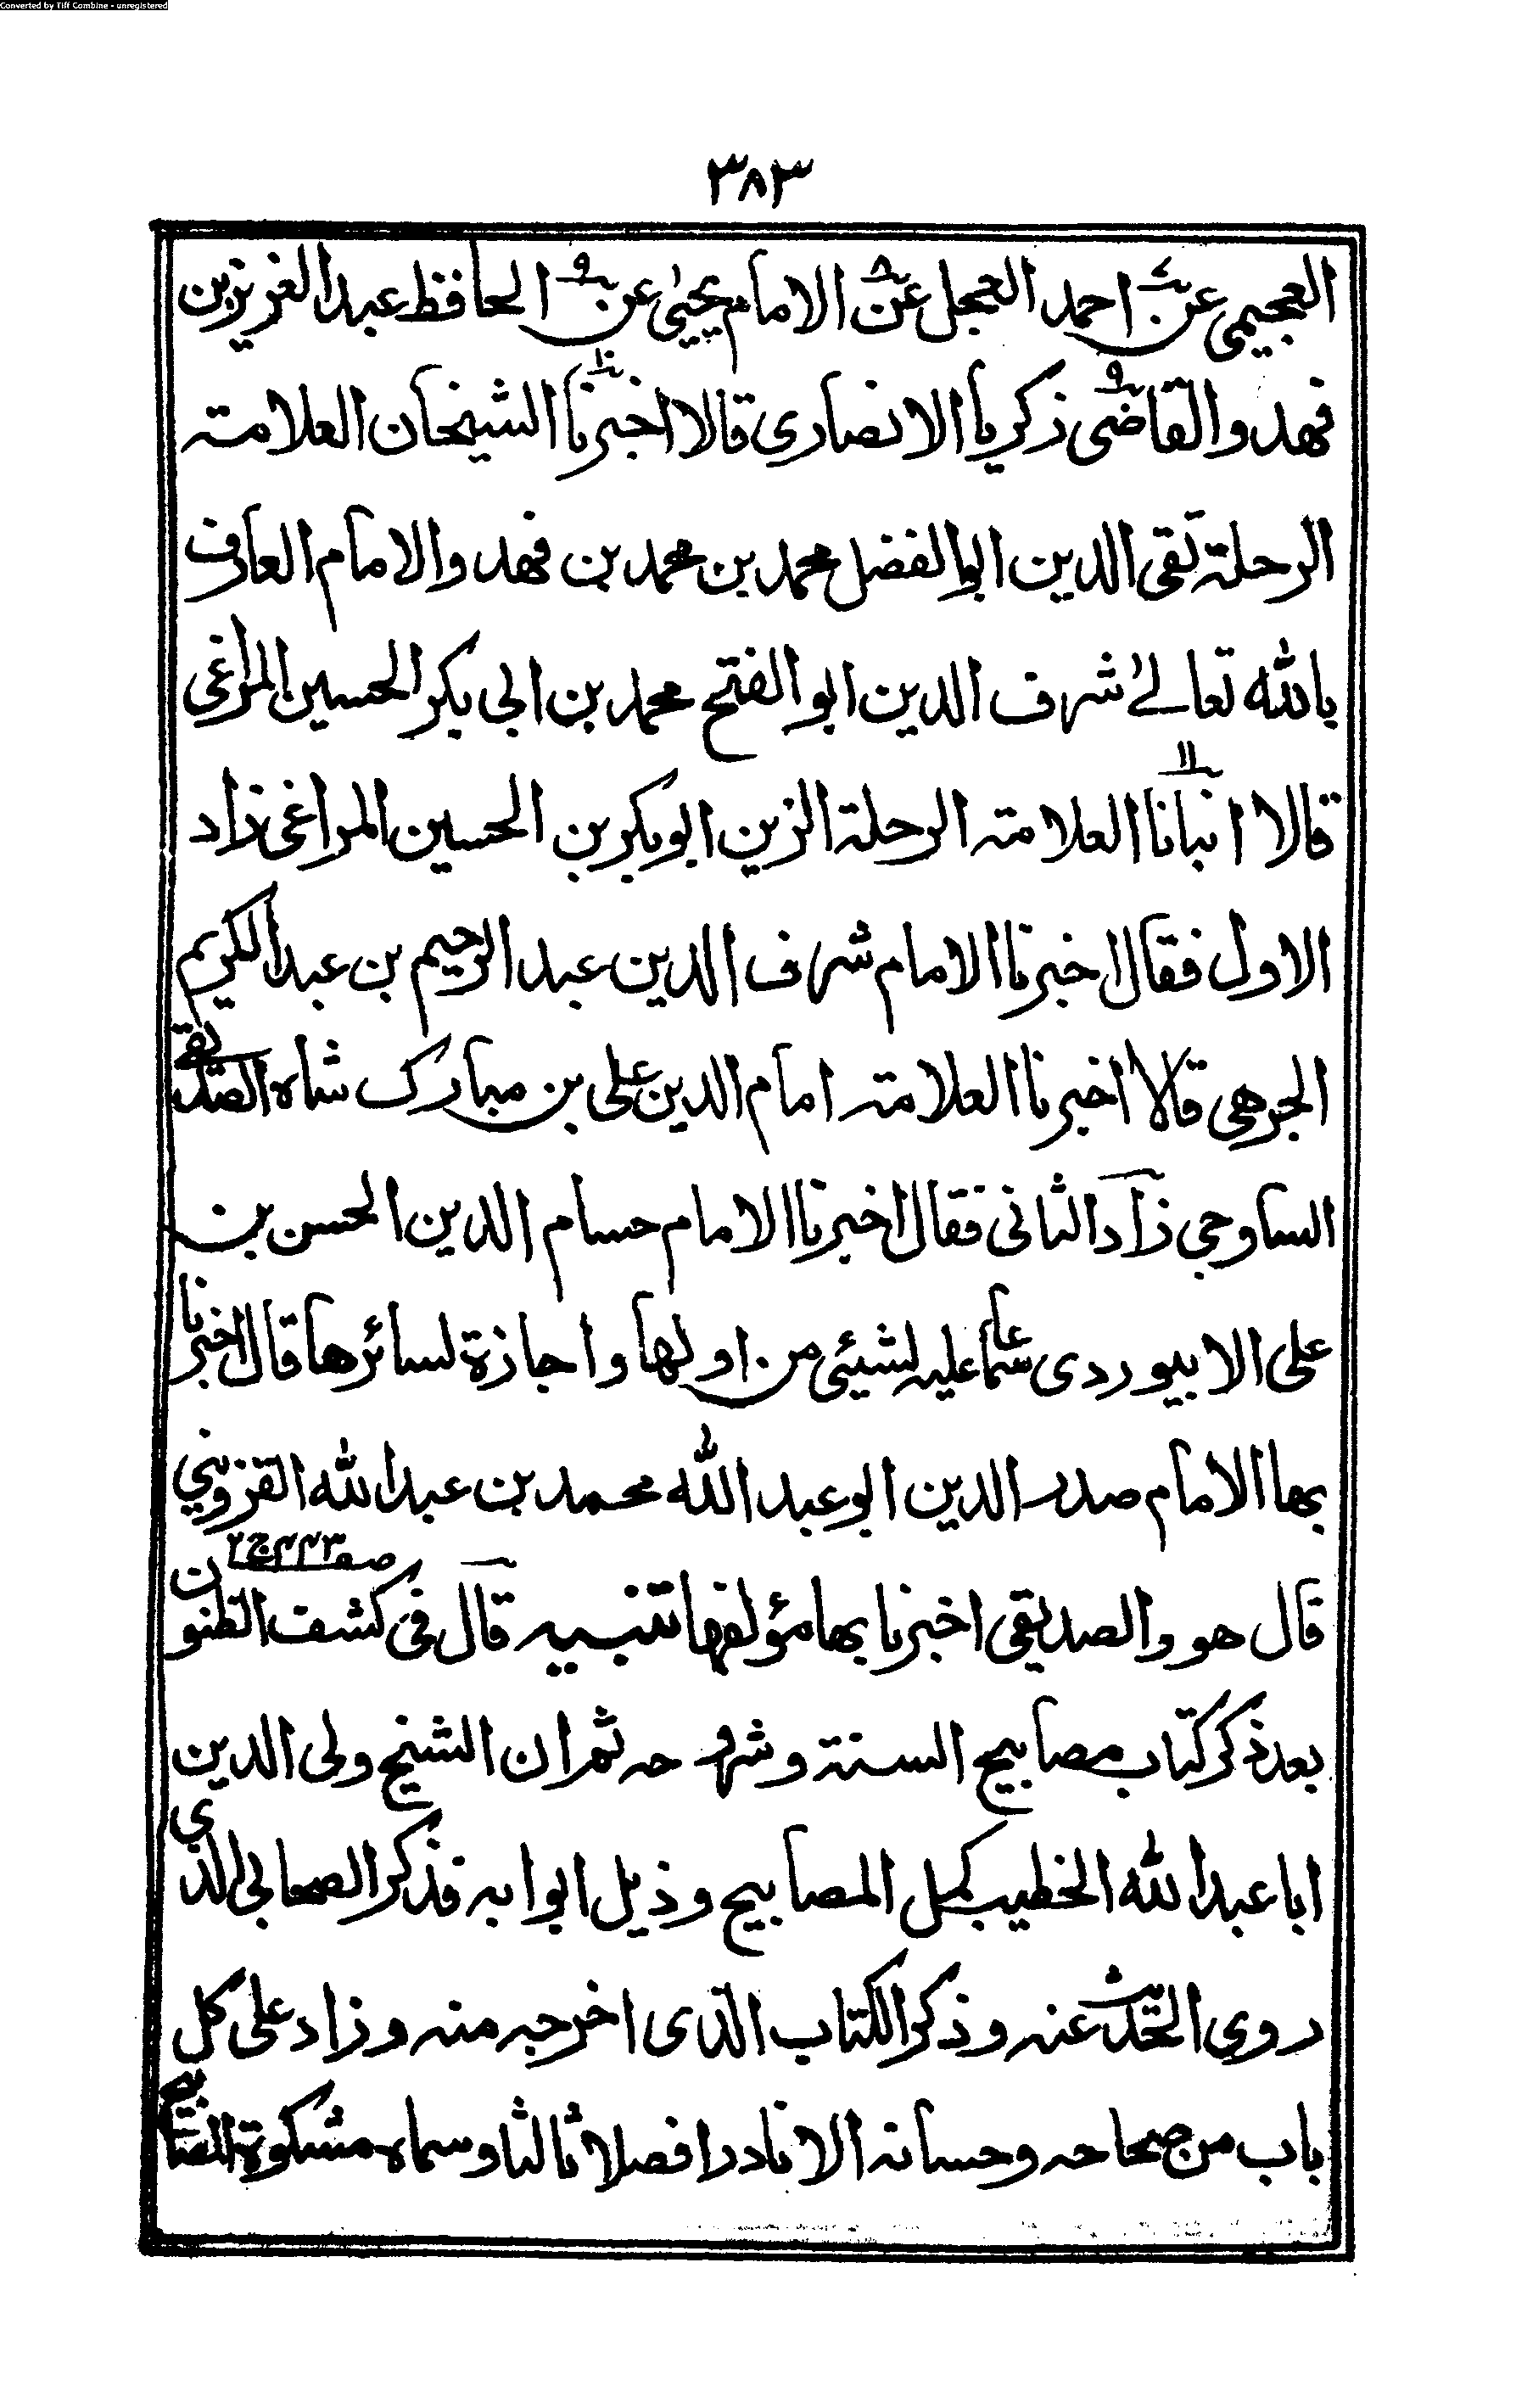 Converted by Tiff Combine - unregistered
٣٨٣
العجيمي عن احمد العجل عن الامام يحيىٰ عن الحافظ عبد العزيز بن
فهد والقاضى زكريا الانصاري قالا اخبرنا الشيخان العلامة
الرحلة تقى الدين ابو الفضل محمد بن محمد بن فهد والامام العارف
بالله تعالىٰ شرف الدين ابو الفتح محمد بن ابى بكر الحسين المراغى
قالا انبانا العلامة الرحلة الزين ابو بكر بن الحسين المراغى زاد
الاول فقال اخبرنا الامام شرف الدين عبد الرحيم بن عبد الكريم
الجرهى قالا اخبرنا العلامة امام الدين على بن مبارك شاه الصديقے
الساوجي زاد الثانى فقال اخبرنا الامام حسام الدين الحسن بن
على الابيوردى سماعا عليه لشيئى من اولها واجازة لسائرها قال اخبرنا
بها الامام صدر الدين ابو عبد الله محمد بن عبد الله القزويني
صـ ٤٤٣ ج ٢
قال هو والصديقى اخبرنا بها مؤلفها تنبيه قال فى كشف الظنون
بعد ذكر كتاب مصابيح السنة وشروحه ثم ان الشيخ ولى الدين
ابا عبد الله الخطيب كمل المصابيح وذيل ابوابه فذكر الصحابى الذي
روى الحديث عنه وذكر الكتاب الذى اخرجه منه وزاد على كل
باب من صحاحه وحسانه الا نادرا فصلا ثالثا وسماه مشكوة المصابيح